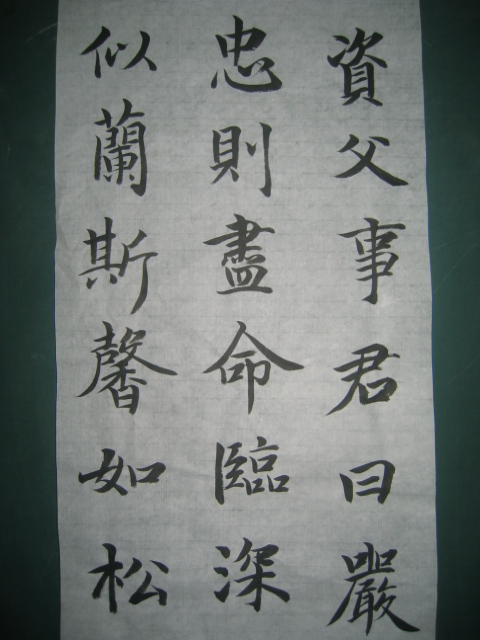 資父事君曰嚴
忠則盡命臨深
似蘭斯馨如松